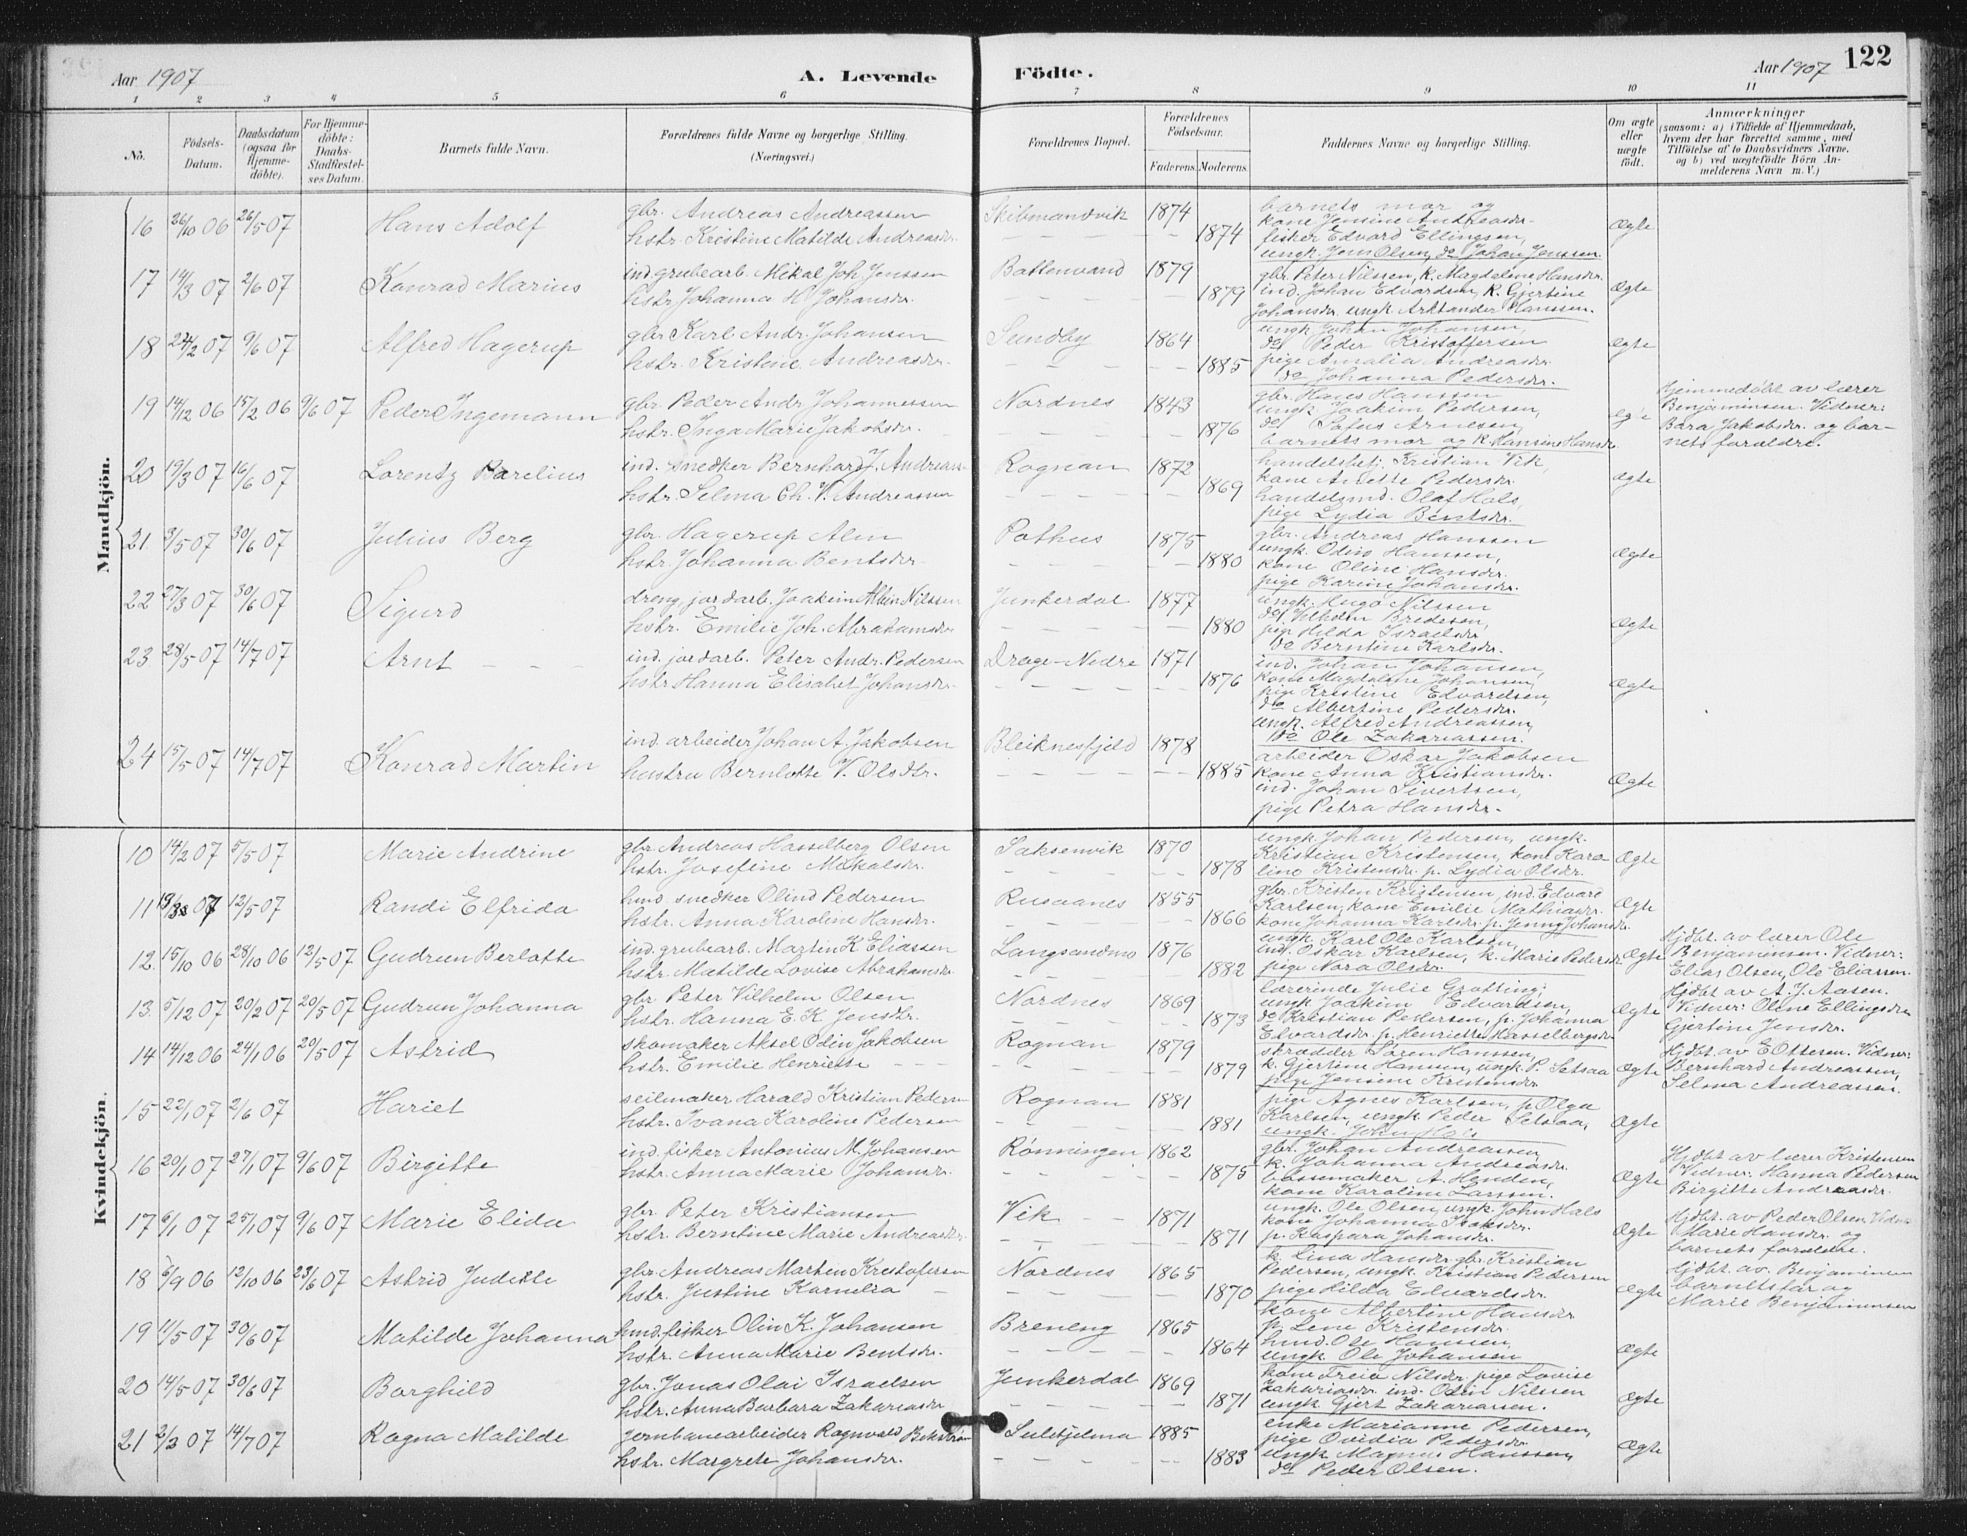 Aar 1907 A. Levende Födte. Aar 1907 122
1 2 3 4 5 6 7 8 9 10 11
No. Födsels-Datum. Daabsdatum (ogsaa for Hjemme-döbte). For Hjemme-döbte: Daabs-Stadfæstel-ses Datum. Barnets fulde Navn. Forældrenes fulde Navne og borgerlige Stilling. (Næringsvei.) Forældrenes Bopæl. Forældrenes Födselsaar. Faderens. Moderens. Faddernes Navne og borgerlige Stilling. Om ægte eller uægte födt. Anmærkninger (saasom: a) i Tilfælde af Hjemmedaab, hvem der har forrettet samme, med Tilföielse af to Daabsvidners Navne, og b) ved uægtefödte Börn An-melderens Navn m. V.)
Mandkjön.
16 26/10 06 26/5 07 Hans Adolf gbr. Andreas Andreassen Skibmandvik 1874 barnets mor og
hstr. Kristine Matilde Andreasdr. 1874 kone Jensine Andreasdr.
fisker Edvard Ellingsen, Ægte
ungk. Jens Olsen, do Johan Jenssen.
17 14/3 07 2/6 07 Konrad Marius ind. grubearb. Mikal Joh. Jenssen Bottenvand 1879 gbr. Peter Nilssen, k. Magdalene Hansdr.
hstr. Johanna H. Johansdr. 1879 ind. Johan Edvardsen, k. Gjertine Ægte
Johansdr. ungk. Arktander Hanssen.
18 24/2 07 9/6 07 Alfred Hagerup gbr. Karl Andr. Johansen Sundby 1864 ungk. Johan Johansen,
hstr. Kristine Andreasdr. 1885 do Peder Kristoffersen Ægte
pige Amalia Andreasdr.
do Johanna Pedersdr.
19 14/12 06 15/2 06 9/6 07 Peder Ingemann gbr. Peder Andr. Johannessen Nordnes 1843 gbr. Hanssen Hjemmedøbt av lærer
hstr. Inga Marie Jakobsdr. 1876 ungk. Joakim Pedersen, Ægte Benjaminsen. Vidner:
Arnesen Bara Jakobsdr. og bar-
barnets mor og k. Hansine Hansdr. nets forældre.
20 19/3 07 16/6 07 Lorentz Borelius ind. snedker Bernhard J. Andreas- Rognan 1872 handelsbetj. Kristian Vik,
hstr. Selma Ch. V. Andreassen 1869 kone Anette Pedersdr. Ægte
handelsmd. Olaf Hals,
pige Lydia Bentsdr.
21 3/5 07 30/6 07 Julius Berg gbr. Hagerup Alm Pothus 1875 gbr. Andreas Hanssen
hstr. Johanna Bentsdr. 1880 ungk. Odin Hanssen, Ægte
kone Oline Hansdr.
pige Karine Johansdr.
22 27/3 07 30/6 07 Sigurd dreng jordarb. Joakim Albin Nilssen Junkerdal 1877 ungk. Hugo Nilssen
hstr. Emilie Joh. Abrahamsdr. 1880 do Vilhelm Bredesen, Ægte
pige Hilda Israelsdr.
do Berntine Karlsdr.
23 28/5 07 14/7 07 Arnt ind. jordarb. Peter Andr. Pedersen Drage-Nedre 1871 ind. Johan Johansen,
hstr. Hanna Elisabet Johansdr. 1876 kone Magdalene Johansen, Ægte
pige Kristine Edvardsen,
do Albertine Pedersdr.
ungk. Alfred Andreassen,
do Ole Zakariassen.
24 15/5 07 14/7 07 Konrad Martin ind. arbeider Johan A. Jakobsen Bleiknesfjeld 1878 arbeider Oskar Jakobsen
hustru Bernlotte V. Olsdtr. 1885 kone Anna Kristiansdr. Ægte
ind. Johan Sivertsen,
pige Petra Hansdr.
Kvindekjön.
10 14/2 07 5/5 07 Marie Andrine gbr. Andreas Hasselberg Olsen Saksenvik 1870 ungk. Johan Pedersen, ungk.
hstr. Josefine Mikalsdr. 1878 Kristian Kristensen, kone Karo- Ægte
line Kristensdr. p. Lydia Olsdr.
11 07 12/5 07 Randi Elfrida hmd. snedker Olind Pedersen Rusaanes 1855 gbr. Kristen Kristensen, ind. Edvard
hstr. Anna Karoline Hansdr. 1866 Karlsen, kone Emilie Mathiasdr. Ægte
kone Johanna Karlsdr. p. Jenny Johansdr.
12 15/10 06 28/10 06 12/5 07 Gudrun Berlotte ind. grubearb. Martin K. Eliassen Langsandmo 1876 ungk. Karl Ole Karlsen, Hjdbt. av lærer Ole
hstr. Matilde Lovise Abrahamsdr. 1882 ind. Oskar Karlsen, k. Marie Pedersdr. Ægte Benjaminsen. Vidner:
pige Nora Olsdr. Elias Olsen, Ole Eliassen.
13 5/12 07 20/2 07 20/5 07 Gudrun Johanna gbr. Peter Vilhelm Olsen Nordnes 1869 lærerinde Julie Grotting; Hjdbt av A. J. Aasen.
hstr. Hanna E. K. Jensdtr. 1873 ungk. Joakim Edvardsen, Ægte Vidner: Oline Ellingsdr.
do Kristian Pedersen, p. Johanna Gjertine Jensdr.
Edvardsdr. p. Henriette Hasselbergsdr.
14 14/12 06 24/1 06 20/5 07 Astrid skomaker Aksel Odin Jakobsen Rognan 1879 skrædder Søren Hanssen, Hjdbt. av E. Ottesen. Vidner:
hstr. Emilie Henriette 1879 k. Gjertine Hanssen, ungk. P. Setsaa Ægte Bernhard Andreassen,
pige Jensine Kristensdr. Selma Andreassen.
15 22/1 07 2/6 07 Hariet seilmaker Harald Kristian Pedersen Rognan 1881 pige Agnes Karlsen, p. Olga
hstr. Ivana Karoline Pedersen 1881 Karlsen, ungk. Peder Setsaa, Ægte
ungk. John Hals
16 20/1 07 27/1 07 9/6 07 Birgitte ind. fisker Antonius M. Johansen Rønningen 1862 gbr. Johan Andreassen, Hjdbt av lærer Kristensen
hstr. Anna Marie Johansdr. 1875 k. Johanna Andreasdr. Ægte Vidner: Hanna Pedersen
bøssemaker A. Henden, Birgitte Andreasdr.
kone Karoline Larssen.
17 6/1 07 25/1 07 9/6 07 Marie Elida gbr. Peter Kristiansen Vik 1871 ungk. Ole Olsen, ungk. John Hals Hjdbt. av Peder Olsen. Vidn.
hstr. Berntine Marie Andreasdr. 1871 kone Johanna Isaksdr. Ægte Marie Hansdr. og
p. Kaspara Johansdr. barnets forældre.
18 5/9 06 12/10 06 23/6 07 Astrid Juditte gbr. Andreas Marten Kristofersen Nordnes 1865 k. Lina Hansdr. gbr. Kristian Hjdbt. av. Benjaminsen
hstr. Justine Kornelia 1870 Pedersen, ungk. Kristian Pedersen Ægte barnets far og
pige Hilda Edvardsdr. Marie Benjaminsen
19 11/5 07 30/6 07 Matilde Johanna hmd. fisker Olin K. Johansen Breneng 1865 kone Albertine Hansdr.
hstr. Anna Marie Bentsdr. 1864 p. Lene Kristensdr. Ægte
hmd. Ole Hanssen,
ungk. Ole Johansen
20 14/5 07 30/6 07 Borghild gbr. Jonas Olai Israelsen Junkerdal 1869 kone Freia Nilsdr. pige Lovise
hstr. Anna Barbara Zakariasdr. 1871 Zakariasdr. ind. Odin Nilssen Ægte
ungk. Gjert Zakariassen.
21 2/3 07 14/7 07 Ragna Matilde jernbanearbeider Ragnvald Bekstrøm Sulitjelma 1885 enke Marianne Pedersen,
hstr. Margrete Johansdr. 1883 pige Ovidia Pedersdr. Ægte
ungk. Magnus Hanssen,
do Peder Olsen.